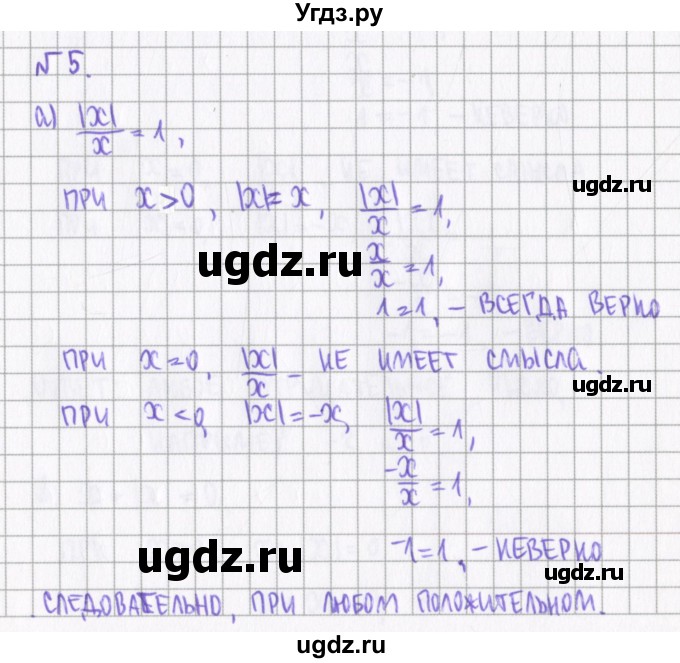 Угдз.ру
№ 5.
а) |x|/x = 1,
при x > 0, |x| = x, |x|/x = 1,
ugdz.ru
x/x = 1,
ugdz.ru
1 = 1, – всегда верно
при x = 0, |x|/x – не имеет смысла.
ugdz.ru
при x < 0, |x| = –x, |x|/x = 1,
–x/x = 1,
ugdz.ru
ugdz.ru
–1 = 1, – неверно
следовательно, при любом положительном.
ugdz.ru